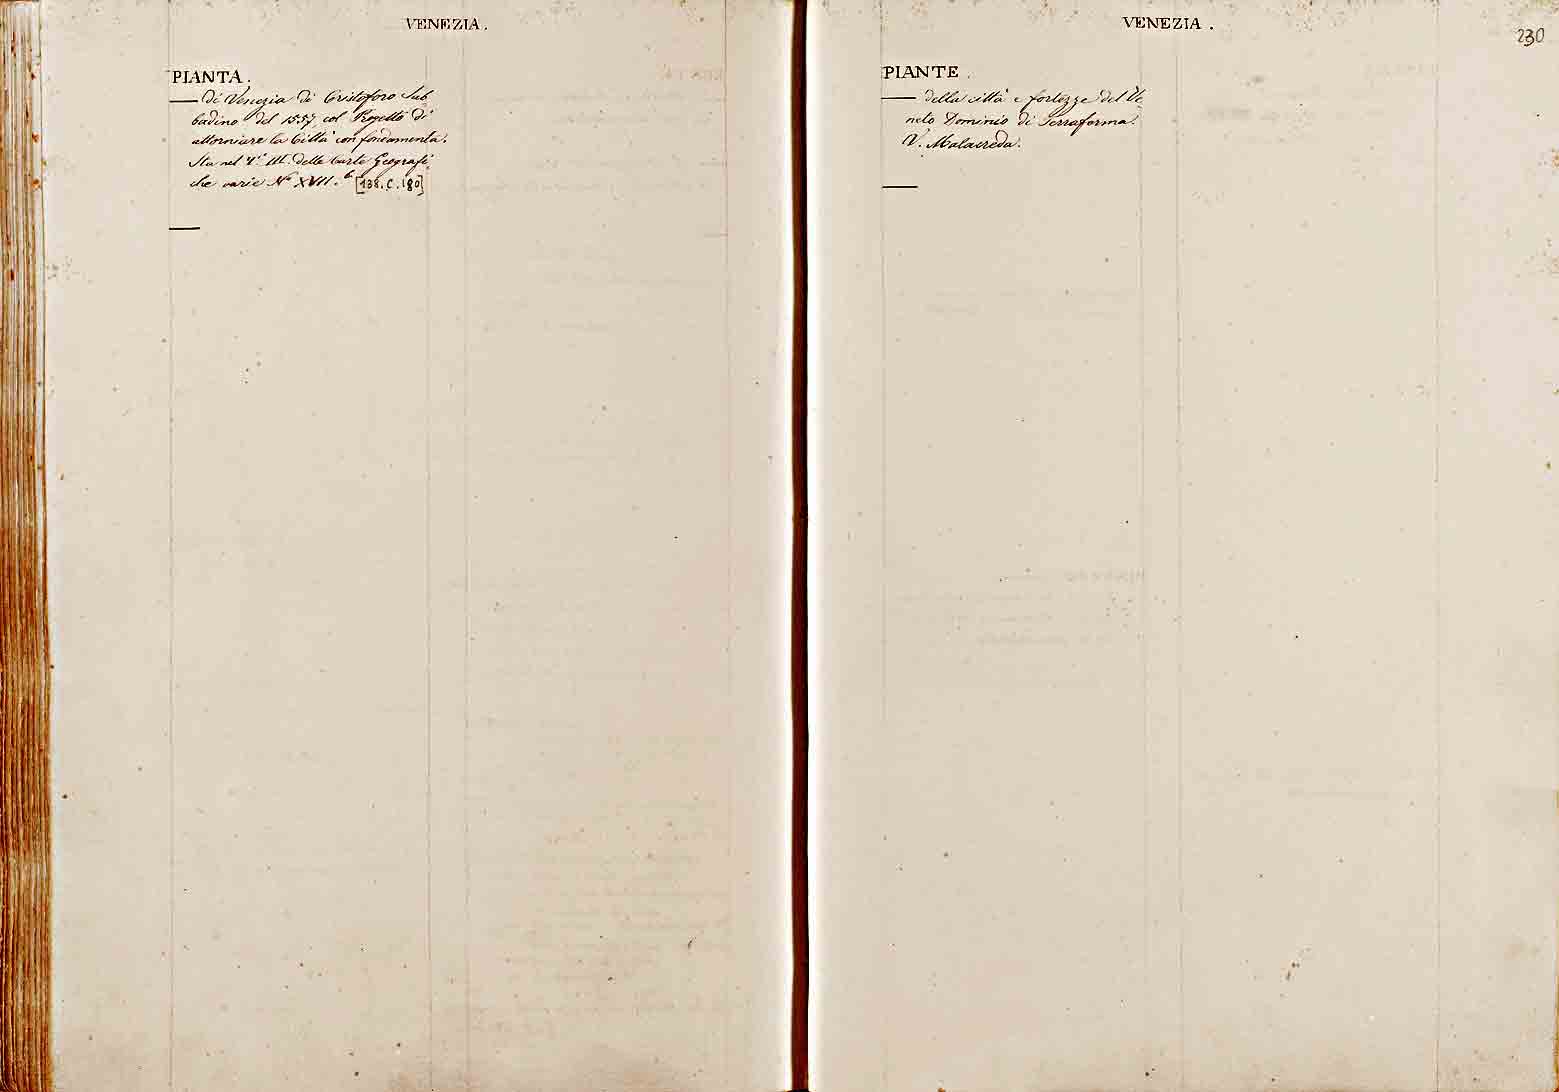 VENEZIA.
PIANTA.
— di Venezia di Cristoforo Sab
badino del 1557, col Progetto di
attorniare la Città con fondamenta.
Sta nel T.º III. delle Carte Geografi
che varie Nº XVII. [138.C.180]
—
VENEZIA.
230
PIANTE.
— della città e fortezze del Ve
neto Dominio di Terraferma.
V. Malacreda.
—